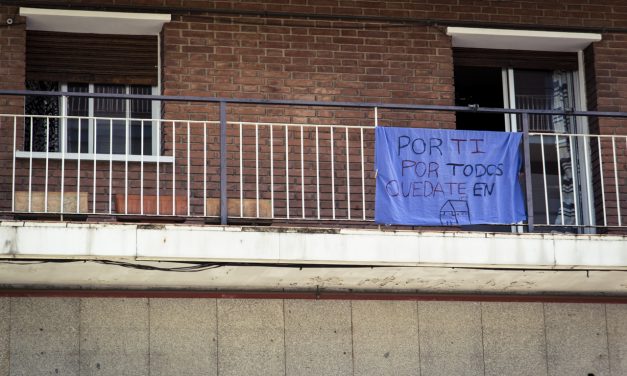 POR TI
POR TODOS
QUEDATE EN